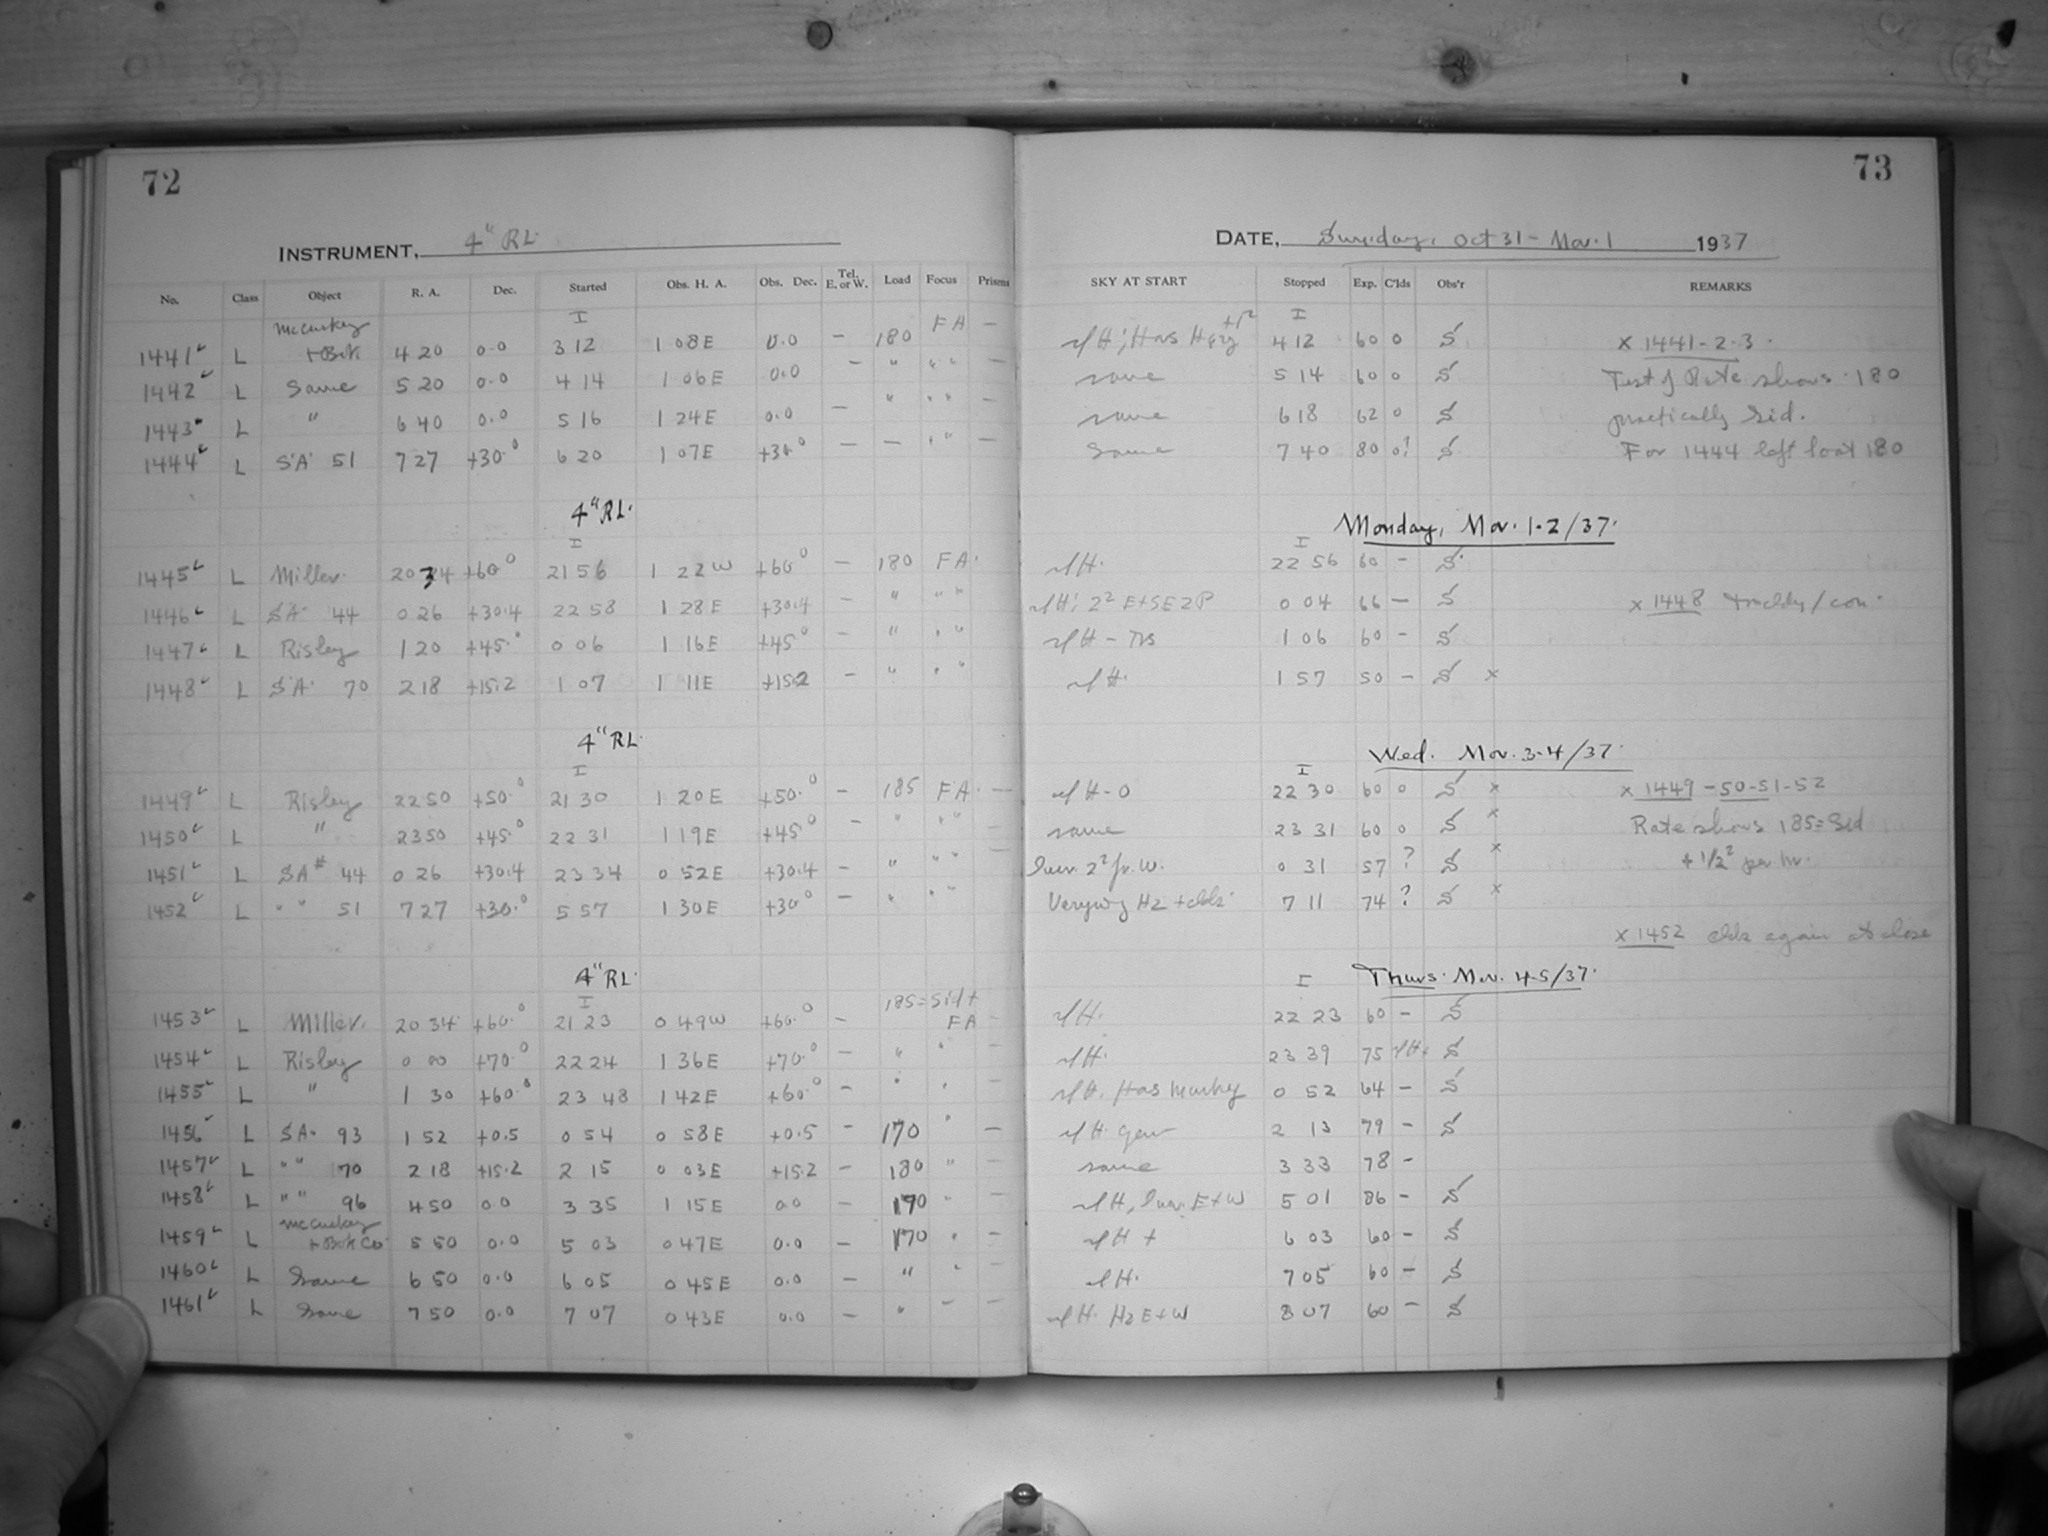 72
INSTRUMENT, 4" RL.
No. Class Object R. A. Dec. Started Obs. H. A. Obs. Dec. Tel. E. or W. Load Focus Prisms
I
McCuskey
1441 L + Bok 4 20 0.0 3 12 1 08E 0.0 - 180 FA -
1442 L Same 5 20 0.0 4 14 1 06E 0.0 - " " " -
1443 L " 6 40 0.0 5 16 1 24E 0.0 - " " " -
1444 L SA 51 7 27 +30.0 6 20 1 07E +30.0 - - " " -
4" RL.
I
1445 L Miller. 20 34 +60.0 21 56 1 22W +60.0 - 180 FA.
1446 L SA. 44 0 26 +30.4 22 58 1 28E +30.4 - " " "
1447 L Risley 1 20 +45.0 0 06 1 16E +45.0 - " " "
1448 L SA. 70 2 18 +15.2 1 07 1 11E +15.2 - " " "
4" RL.
I
1449 L Risley 22 50 +50.0 21 30 1 20E +50.0 - 185 FA. -
1450 L " 23 50 +45.0 22 31 1 19E +45.0 - " " " -
1451 L SA# 44 0 26 +30.4 23 34 0 52E +30.4 - " " "
1452 L " " 51 7 27 +30.0 5 57 1 30E +30.0 - " " "
4" RL.
I
185 = Sid +
1453 L Miller. 20 34 +60.0 21 23 0 49W +60.0 - FA -
1454 L Risley 0 00 +70.0 22 24 1 36E +70.0 - " " -
1455 L " 1 30 +60.0 23 48 1 42E +60.0 - " " -
1456 L SA. 93 1 52 +0.5 0 54 0 58E +0.5 - 170 " -
1457 L " " 70 2 18 +15.2 2 15 0 03E +15.2 - 180 " -
1458 L " " 96 4 50 0.0 3 35 1 15E 0.0 - 170 " -
McCuskey
1459 L + Bok Co 5 50 0.0 5 03 0 47E 0.0 - 170 " -
1460 L Same 6 50 0.0 6 05 0 45E 0.0 - " " -
1461 L Same 7 50 0.0 7 07 0 43E 0.0 - " - -
73
DATE, Sunday, Oct 31 - Nov. 1 1937
SKY AT START Stopped Exp. C'lds Obs'r REMARKS
I
4 12 60 0 S x 1441-2-3.
same 5 14 60 0 S Test of Rate shows 180
same 6 18 62 0 S practically Sid.
Same 7 40 80 0? S For 1444 left load 180
Monday, Nov. 1-2/37.
I
22 56 60 - S
0 04 66 - S x 1448
1 06 60 - S
1 57 50 - S x
Wed. Nov. 3-4/37.
I
22 30 60 0 S x x 1449-50-51-52
same 23 31 60 0 S x Rate shows 185 = Sid
0 31 57 ? S x + 1/2 per hr.
7 11 74 ? S x
x 1452 clds again at close
Thurs. Nov. 4-5/37.
I
22 23 60 - S
23 39 75 S
0 52 64 - S
2 13 79 - S
same 3 33 78 -
E+W 5 01 86 - S
6 03 60 - S
7 05 60 - S
Hz E+W 8 07 60 - S